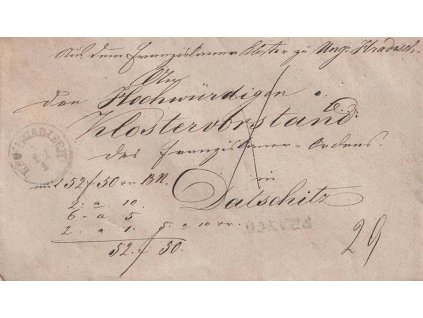 Aus dem Franziskaner Kloster zu Ung: Hradisch.
An
den Hochwürdigen
Klostervorstand
des Franziskaner-Ordens
mit 52 f 50 in BN. in
2. a 10. Datschitz
6. a 5
2. a 1. 5. a 10 xr.
52. f 50.
29